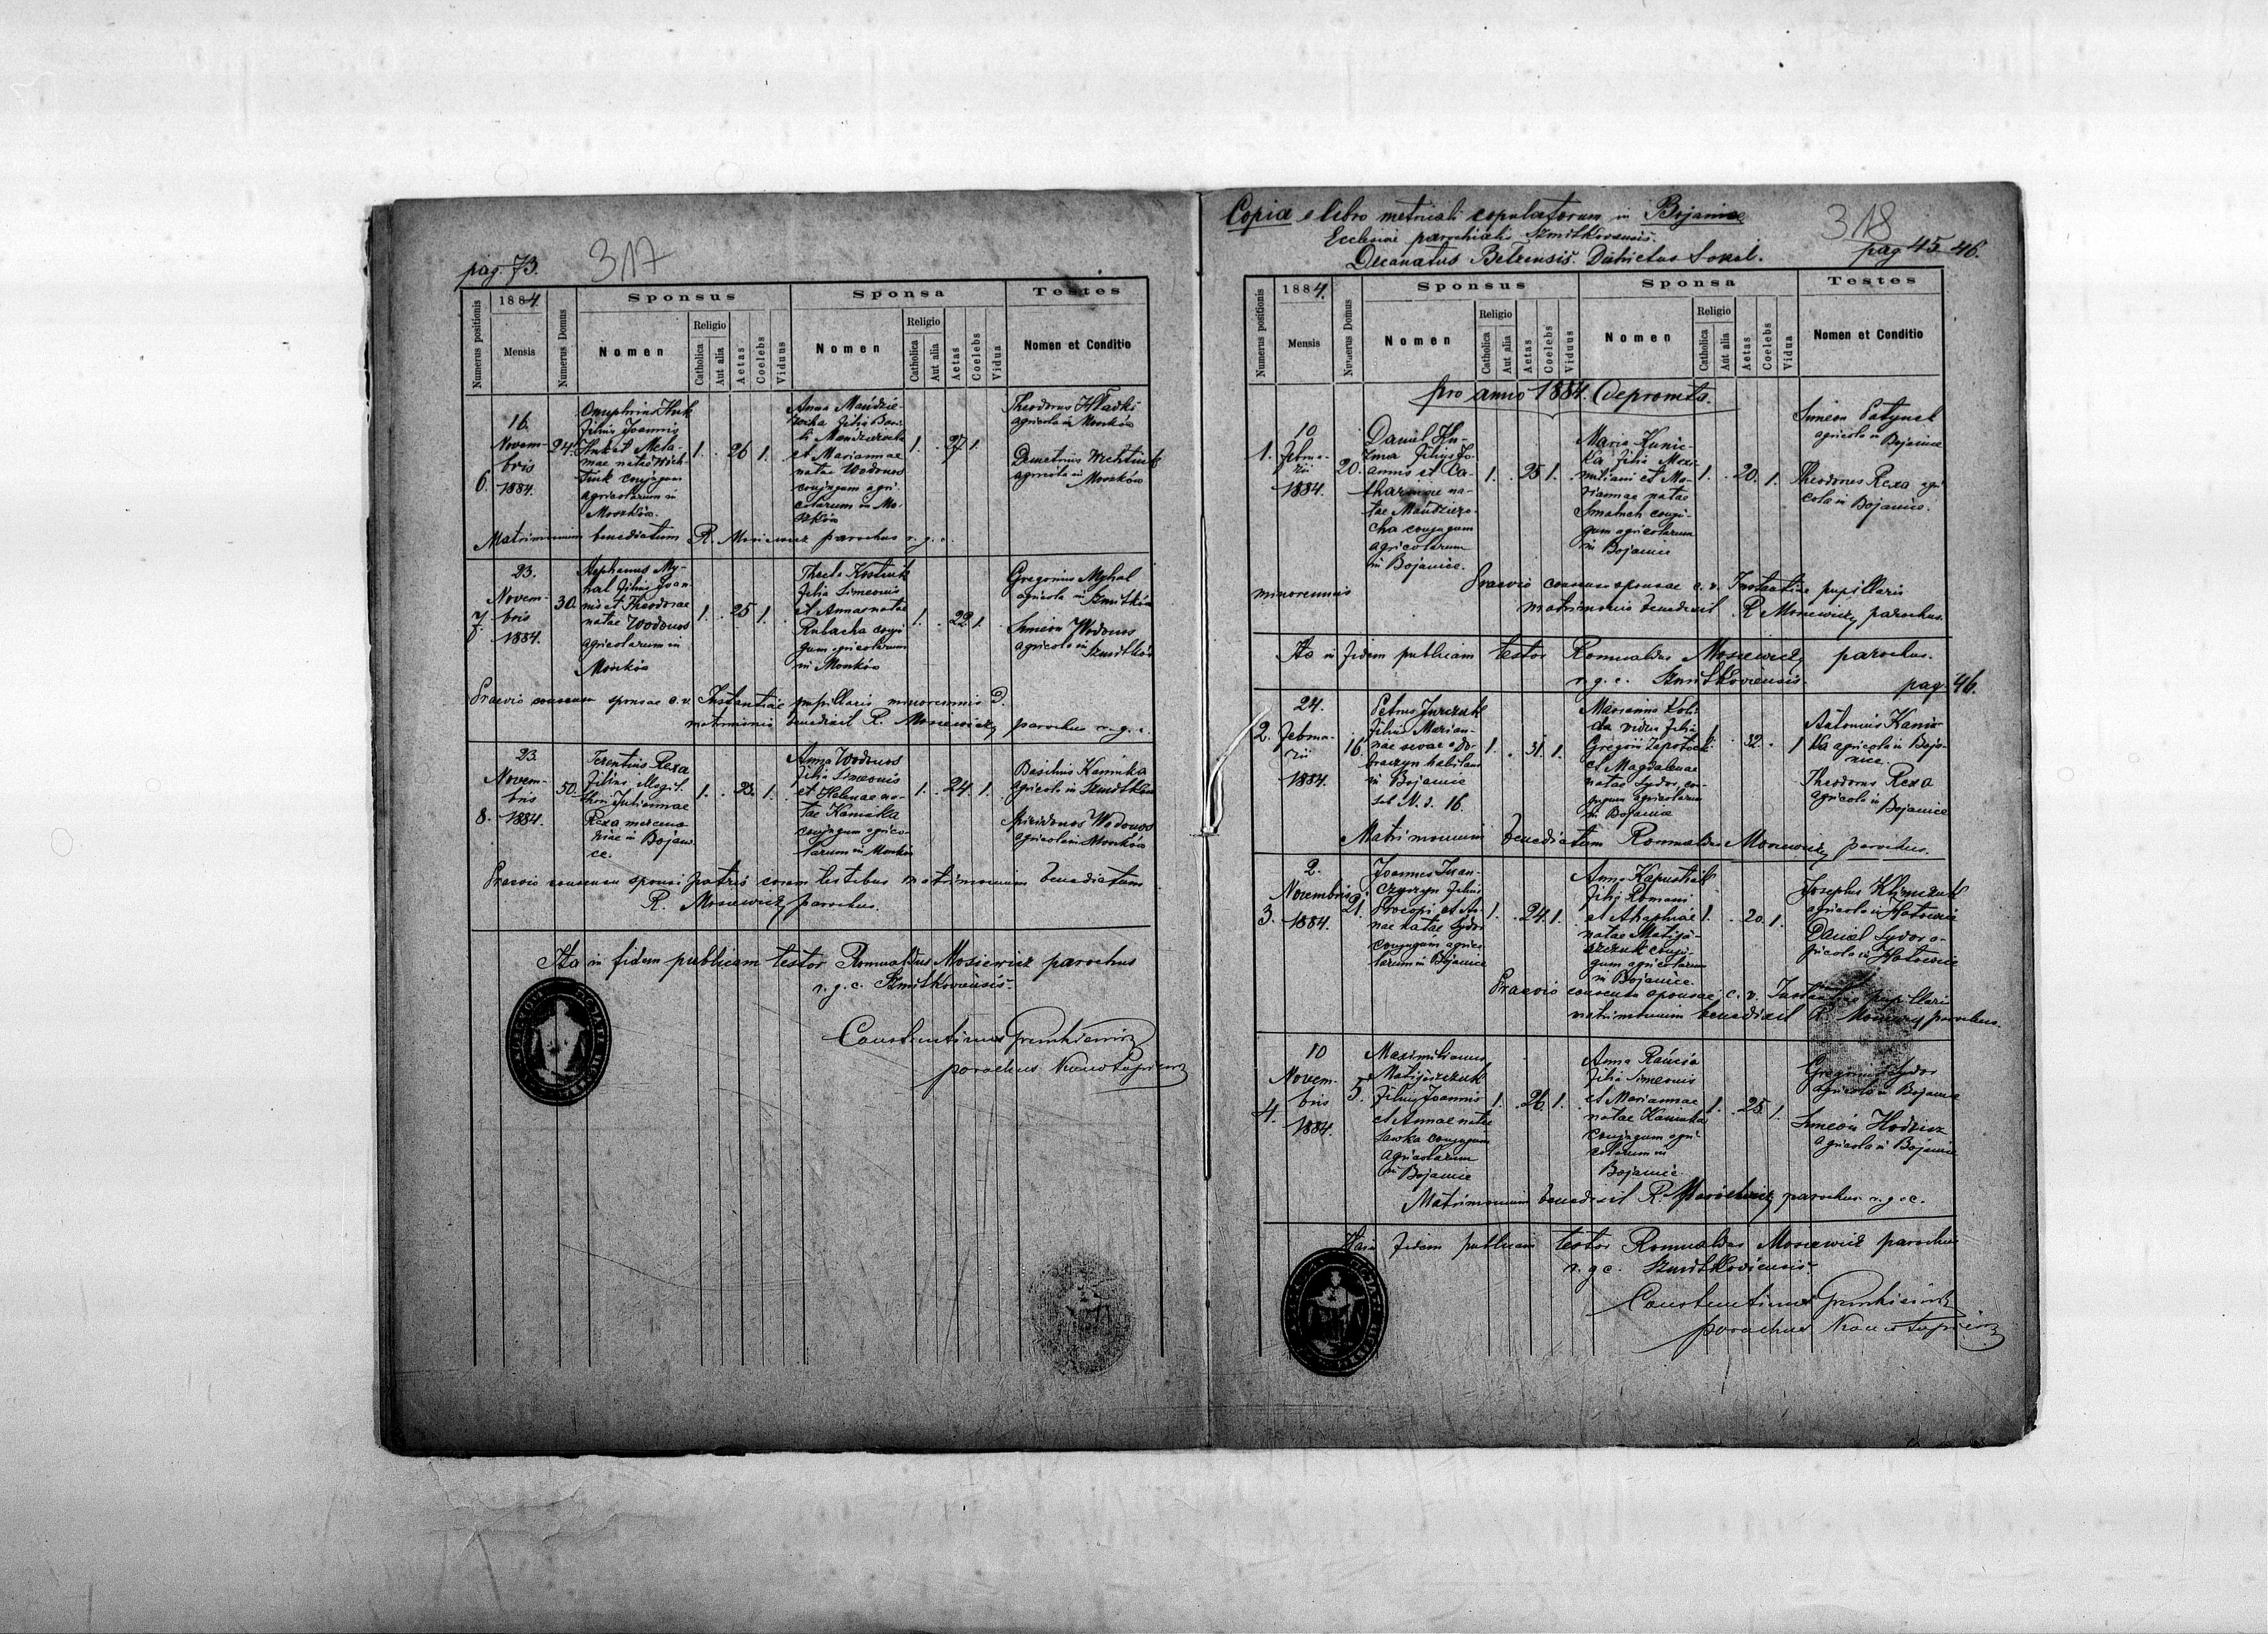 pag. 73.
317
Numerus positionis
1884.
Mensis
Numerus Domus
Sponsus
Nomen
Religio
Catholica
Aut alia
Aetas
Coelebs
Viduus
Sponsa
Nomen
Religio
Catholica
Aut alia
Aetas
Coelebs
Vidua
Testes
Nomen et Conditio
6.
16.
Novem-
bris
1884.
24.
filius Joannis
conjugum
agricolarum in
Moszków.
1. . 26 1.
Anna Mandzie-
et Mariannae
natae Wodonos
conjugum agri-
colarum in Mo-
szków
1. . 27. 1.
Theodorus Hladki
agricola in Moszków
Demetrius
agricola in Moszków
Matrimonium benedictum R. Mosiewicz parochus r. g. c.
7.
23.
Novem-
bris
1884.
30.
Stephanus My-
hal filius Joan-
nis et Theodorae
natae Wodonos
agricolarum in
Moszków
1. . 25 1.
Thecla Kostiuk
filia Simeonis
et Annae natae
Rubacha conju-
gum agricolarum
in Moszków
1. . 22. 1.
Gregorius Myhal
agricola in Szmitków
Simeon Wodonos
agricola in Szmitków
Praevio consensu sponsae c. r. Instantiae pupillaris minorennis
matrimonio benedixit R. Mosiewicz parochus r. g. c.
8.
23.
Novem-
bris
1884.
50.
Terentius Rexa
filius illegit.
Juliannae
Rexa
in Bojani-
ce.
1. . 23. 1.
Anna Wodonos
filia Simeonis
et Helenae na-
tae Kaminka
conjugum agrico-
larum in Moszków
1. . 24. 1.
Basilius Kaminka
agricola in Szmitków
Spiridonos Wodonos
agricola in Moszków
Praevio consensu sponsi patris coram testibus matrimonium benedictum
R. Mosiewicz parochus.
Ita in fidem publicam testor Romualdus Mosiewicz parochus
r. g. c. Szmitkoviensis.
Constantinus
parochus
Copia e libro metricali copulatorum in Bojanice
Ecclesiae parochialis Szmitkoviensis.
Decanatus Belzensis. Districtus Sokal.
318
pag 45-46.
Numerus positionis
1884.
Mensis
Numerus Domus
Sponsus
Nomen
Religio
Catholica
Aut alia
Aetas
Coelebs
Viduus
Sponsa
Nomen
Religio
Catholica
Aut alia
Aetas
Coelebs
Vidua
Testes
Nomen et Conditio
pro anno 1884. depromta.
1.
10
Febru-
arii
1884.
20.
Daniel Ku-
zma filius Jo-
annis et Ca-
tharinae na-
tae Mandziero-
cha conjugum
agricolarum
in Bojanice.
1. . 25 1.
Maria Kunic-
ka filia Maxi-
miliani et Ma-
riannae natae
conju-
gum agricolarum
in Bojanice
1. . 20. 1.
Simeon
agricola in Bojanice
Theodorus Rexa agri
cola in Bojanice.
Praevio consensu sponsae c. r. Instantiae pupillaris
minorennis
matrimonio benedixit R. Mosiewicz parochus.
Ita in fidem publicam testor Romualdus Mosiewicz parochus.
r. g. c. Szmitkoviensis.
pag. 46.
2.
24.
Februa-
rii
1884.
16.
Petrus Jurczuk
filius Marian-
nae
habitans
in Bojanice
sub N. d. 16.
1. . 31. 1.
Marianna
vidua filia
Gregorii Zapotocki
et Magdalenae
natae Sydor con-
jugum agricolarum
in Bojanice
1. . 32. . 1
Antonius Kamin-
ka agricola in Boja-
nice.
Theodorus Rexa
agricola in Bojanice
Matrimonium benedictum Romualdus Mosiewicz parochus.
3.
2.
Novembris
1884.
21.
Joannes Iwan-
czyszyn filius
Procopi et An-
nae natae Sydor
conjugum agrico
larum in Bojanice
1. . 24. 1.
Anna Kapusthak
filia Romani
et Ahaphiae
natae Matijo-
szczuk conju-
gum agricolarum
in Bojanice.
1. . 20. 1.
Josephus Klymczuk
agricola in
Daniel Sydor a-
gricola in
Praevio consensu sponsae c. r. Instantiae pupillari
matrimonium benedixit R. Mosiewicz parochus.
4.
10
Novem-
bris
1884.
5.
Maximilianus
Matijoszczuk
filius Joannis
et Annae natae
Sawka conjugum
agricolarum
in Bojanice
1. . 26. 1.
Anna
filia Simeonis
et Mariannae
natae Kaminka
conjugum agri-
colarum in
Bojanice
1. . 25. 1.
Gregorius Sydor
agricola in Bojanice
Simeon
agricola in Bojanice
Matrimonium benedixit R. Mosiewicz parochus r. g. c.
Ita in fidem publicam testor Romualdus Mosiewicz parochus
r. g. c. Szmitkoviensis.
Constantinus
parochus